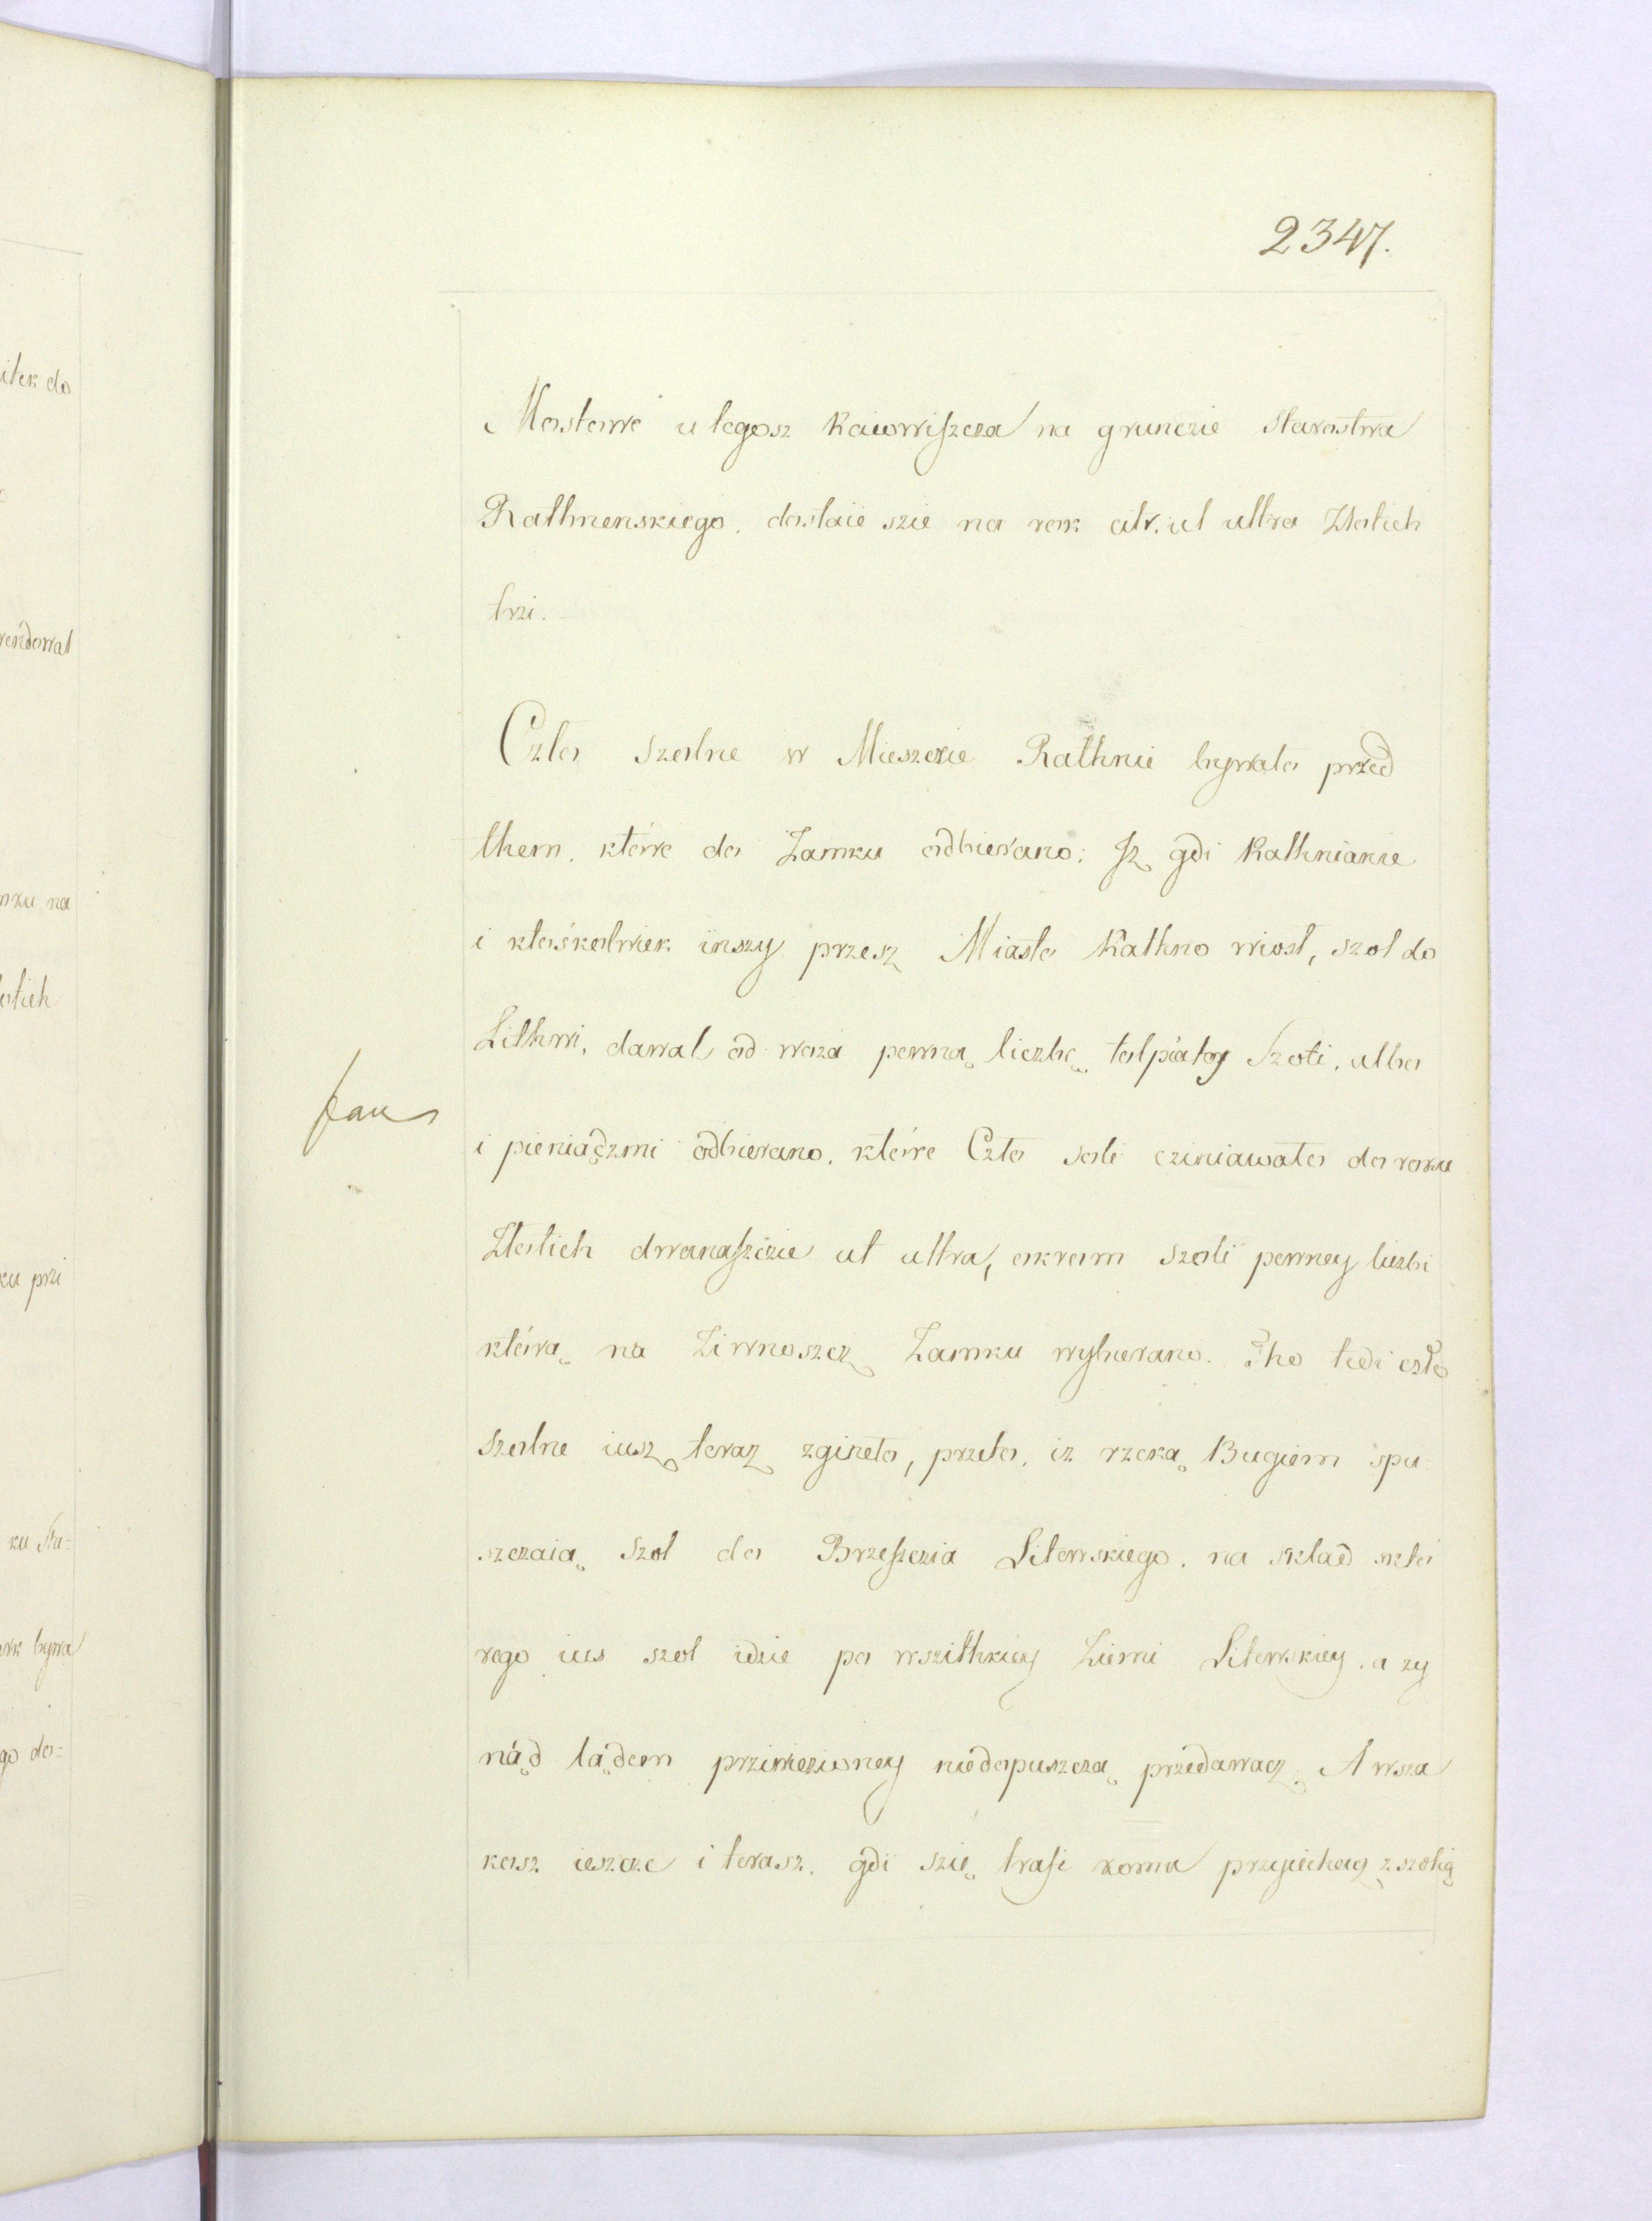 2347.
Mostowe u tegosz Kaiowiszcza na grunczie Starostwa
Rathnenskiego. dostaie szie na rok citr. ul ultra Zlotich
trzi.
Czlo szolne w Miesczie Rathnie bywalo przed
them. które do Zamku odbierano: Jż gdi Rathnianie
i ktośkolwiek inszy przesz Miasto Rathno wiosl, szol do
Lithwi, dawal od woza pewną liczbę tolpiatog Szoli, albo
i pieniądzmi odbierano. które Czlo soli cziniawalo do roku
Zlotich dwanaszczie ut ultra, okrom szoli pewney liczbi
którą na Ziwnoszcz Zamku wybierano. Tho tedi czlo
szolne iusz teraz zginelo, przeto. iz rzeką Bugiem spu
szczaią Szol do Brzeszczia Litewskiego. na sklad skto
rego ius szol idzie po wszithkiey Ziemi Litewskiey. a zy
nąd lądem przimezioney niedopuszczą przedawacz. A wsza
kosz ieszcze i terasz. gdi szię trafi komu przyiechacz z szolią
itek do
rendowal
mku na
lotich
ku przi
ku Sta=
ork bywa
go do=